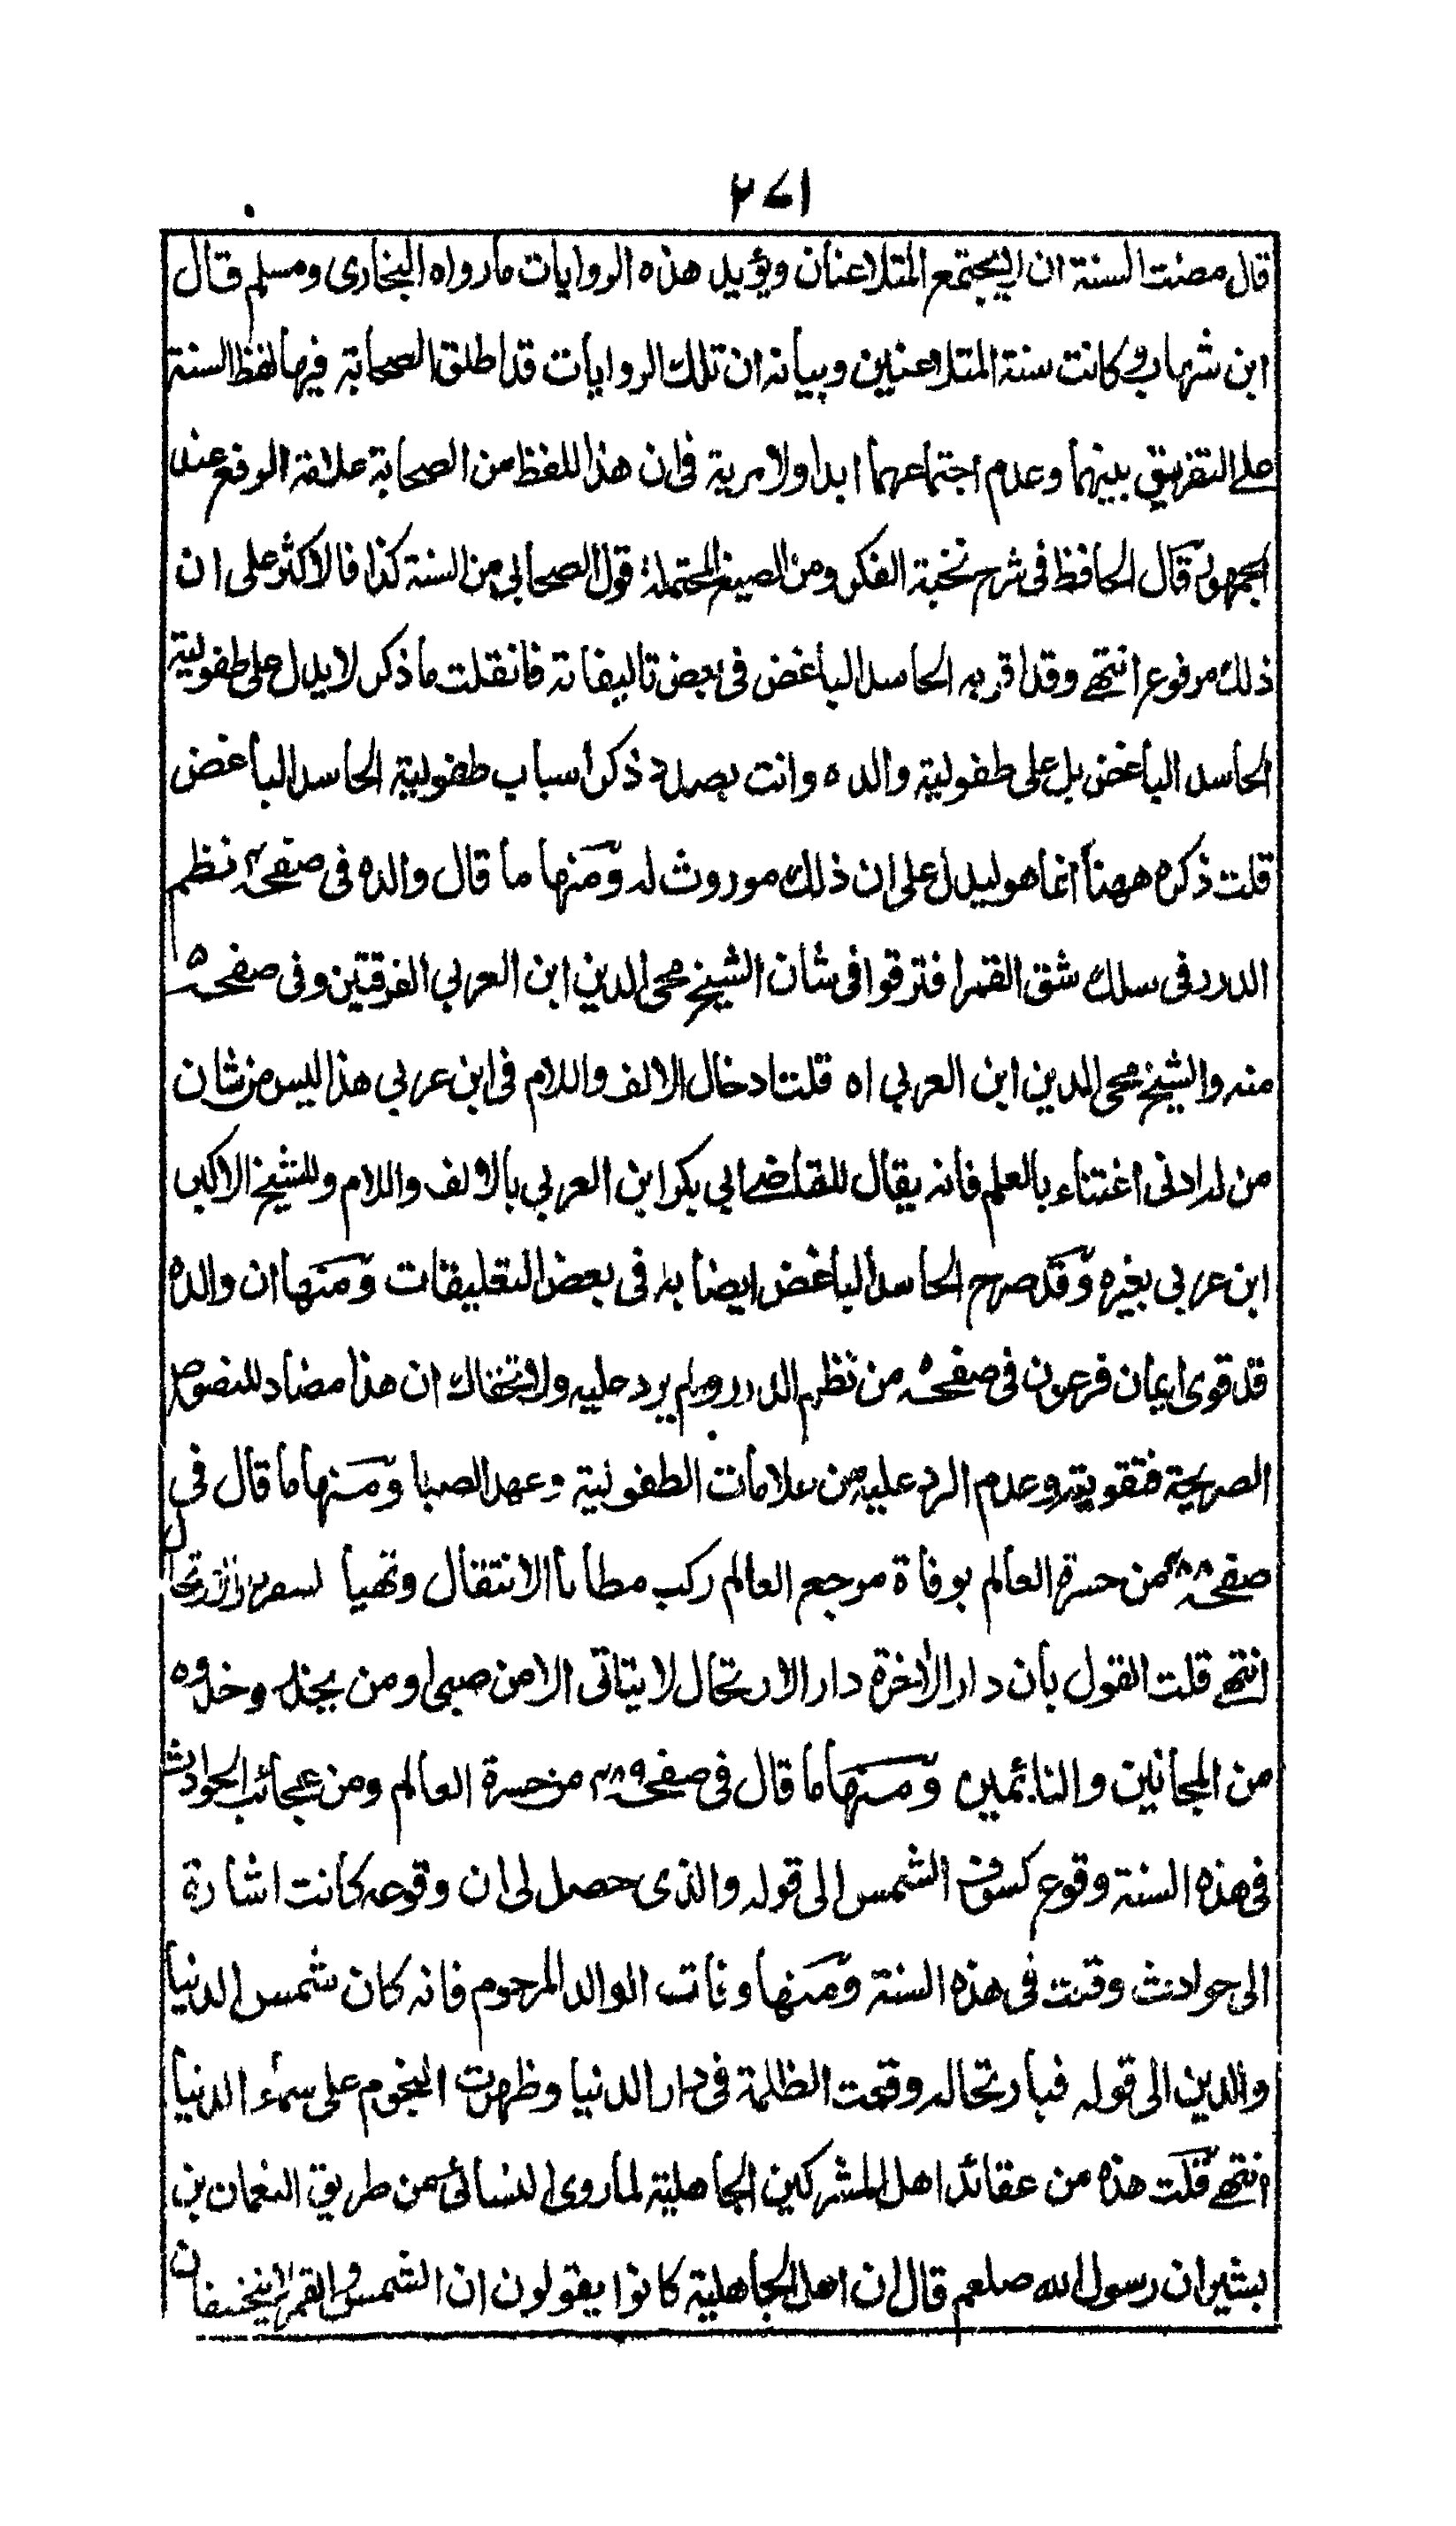 ٢٧١
قال مضت السنة ان لا يجتمع المتلاعنان ويؤيد هذه الروايات ما رواه البخارى ومسلم قال
ابن شهاب وكانت سنة المتلاعنين وبيانه ان تلك الروايات قد اطلق الصحابة فيها لفظ السنة
على التفريق بينهما وعدم اجتماعهما ابدا ولا مرية فى ان هذا اللفظ من الصحابة علامة الرفع عند
الجمهور قال الحافظ فى شرح نخبة الفكر ومن الصيغ المحتملة قول الصحابي من السنة كذا فالاكثر على ان
ذلك مرفوع انتهى وقد اقر به الحاسد الباغض فى بعض تاليفاته فان قلت ما ذكر لا يدل على طفولية
الحاسد الباغض بل على طفولية والده وانت بصدد ذكر اسباب طفولية الحاسد الباغض
قلت ذكره ههنا انما هو ليدل على ان ذلك موروث له ومنها ما قال والده فى صفحه ٣ نظم
الدرر فى سلك شق القمر افترقوا فى شان الشيخ محى الدين ابن العربي الفرقتين وفى صفحه ٥
منه والشيخ محى الدين ابن العربي اه قلت ادخال الالف واللام فى ابن عربي هذا ليس من شان
من له ادنى اعتناء بالعلم فانه يقال للقاضى ابي بكر ابن العربي بالالف واللام وللشيخ الاكبر
ابن عربى بغيره وقد صرح الحاسد الباغض ايضا به فى بعض التعليقات ومنها ان والده
قد قوى ايمان فرعون فى صفحه ٥ من نظم الدرر ولم يرد عليه ولا يخفاك ان هذا مضاد للنصوص
الصريحة فتقويته وعدم الرد عليه من علامات الطفولية وعهد الصبا ومنها ما قال في
صفحه ٨٨ من حسرة العالم بوفاة مرجع العالم ركب مطايا الانتقال وتهيأ لسفر دار الارتحال
انتهى قلت القول بان دار الاخرة دار الارتحال لا يتاتى الا من صبى او من يحذو حذوه
من المجانين والنائمين ومنها ما قال فى صفحه ٨٩ من حسرة العالم ومن عجائب الحوادث
فى هذه السنة وقوع كسوف الشمس الى قوله والذى حصل لى ان وقوعه كانت اشارة
الى حوادث وقعت فى هذه السنة ومنها وفات الوالد المرحوم فانه كان شمس الدنيا
والدين الى قوله فبارتحاله وقعت الظلمة فى دار الدنيا وظهرت النجوم على سماء الدنيا
انتهى قلت هذه من عقائد اهل المشركين الجاهلية لما روى النسائى من طريق النعمان بن
بشير ان رسول الله صلعم قال ان اهل الجاهلية كانوا يقولون ان الشمس والقمر لا ينخسفان